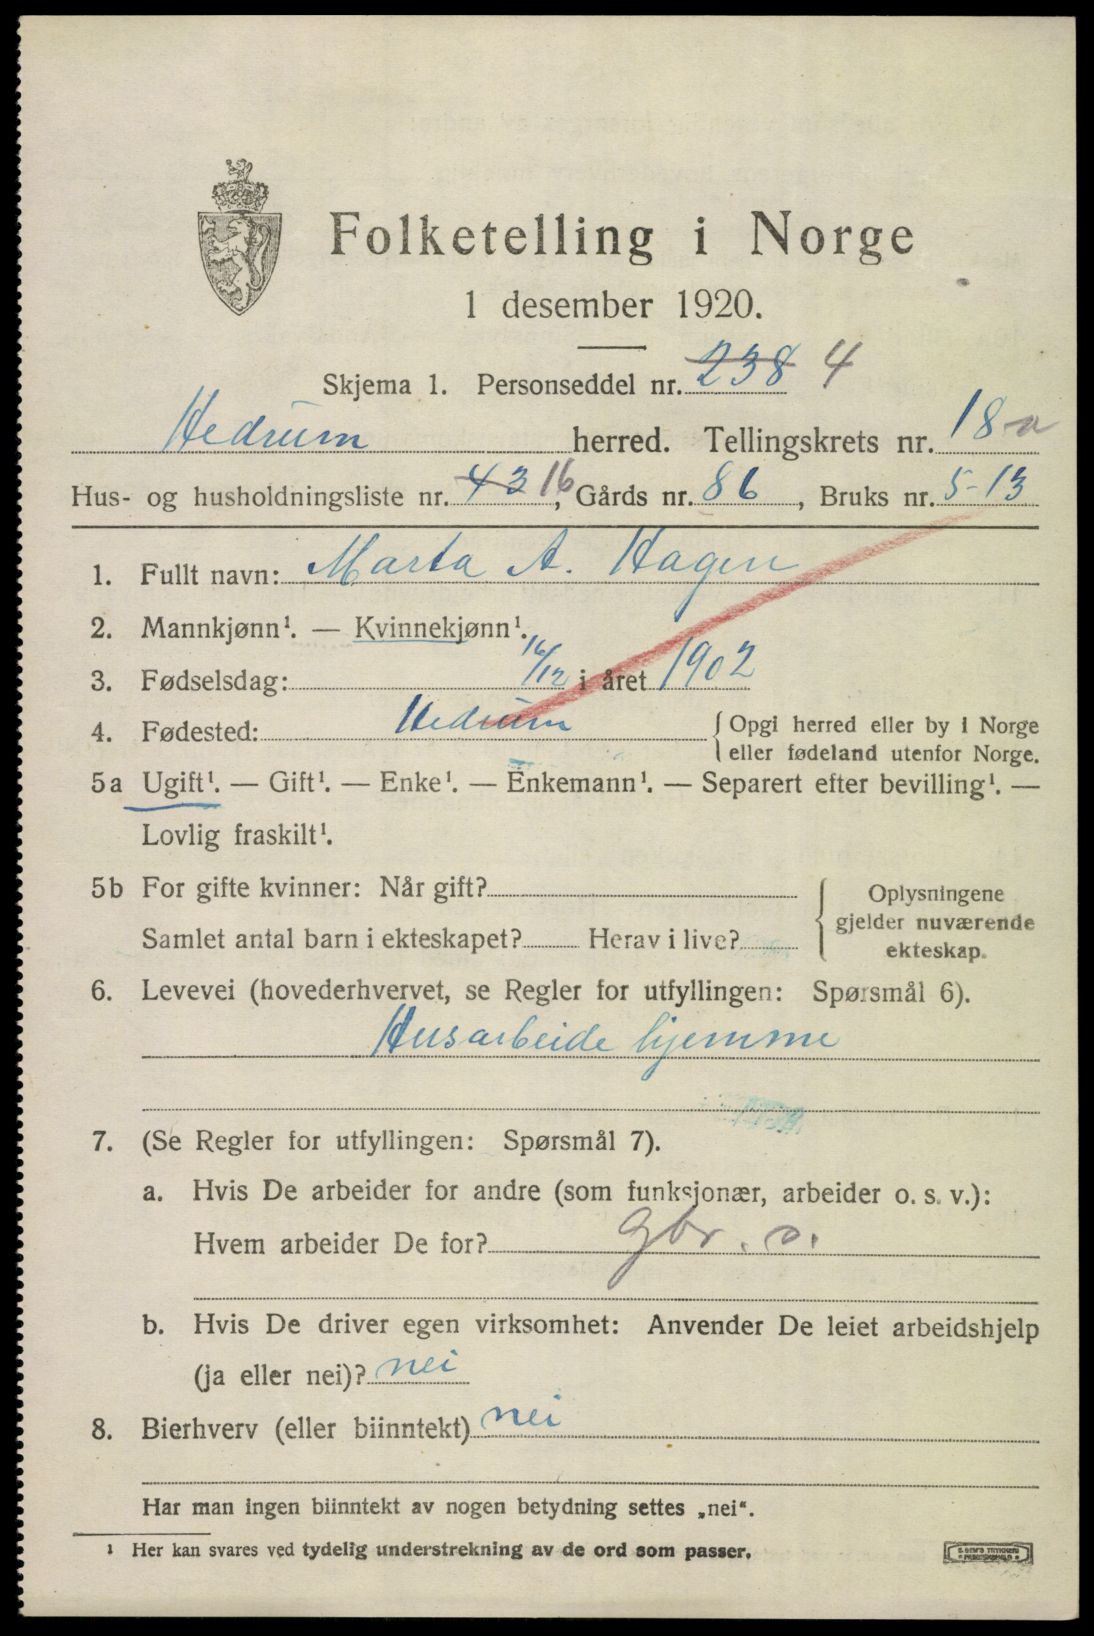 Folketelling i Norge
1 desember 1920.
Skjema 1. Personseddel nr. 238 4
Hedrum herred. Tellingskrets nr. 18 a
Hus- og husholdningsliste nr. 43 16, Gårds nr. 86, Bruks nr. 5-13
1. Fullt navn: Marta A. Hagen
2. Mannkjønn¹. — Kvinnekjønn¹.
3. Fødselsdag: 16/12 i året 1902
4. Fødested: Hedrum { Opgi herred eller by i Norge
eller fødeland utenfor Norge.
5a Ugift¹. — Gift¹. — Enke¹. — Enkemann¹. — Separert efter bevilling¹. —
Lovlig fraskilt¹.
5b For gifte kvinner: Når gift?
Samlet antal barn i ekteskapet? Herav i live?
{ Oplysningene
gjelder nuværende
ekteskap.
6. Levevei (hovederhvervet, se Regler for utfyllingen: Spørsmål 6).
Husarbeide hjemme
7. (Se Regler for utfyllingen: Spørsmål 7).
a. Hvis De arbeider for andre (som funksjonær, arbeider o. s. v.):
Hvem arbeider De for? gbr. o.
b. Hvis De driver egen virksomhet: Anvender De leiet arbeidshjelp
(ja eller nei)? nei
8. Bierhverv (eller biinntekt) nei
Har man ingen biinntekt av nogen betydning settes „nei“.
¹ Her kan svares ved tydelig understrekning av de ord som passer.